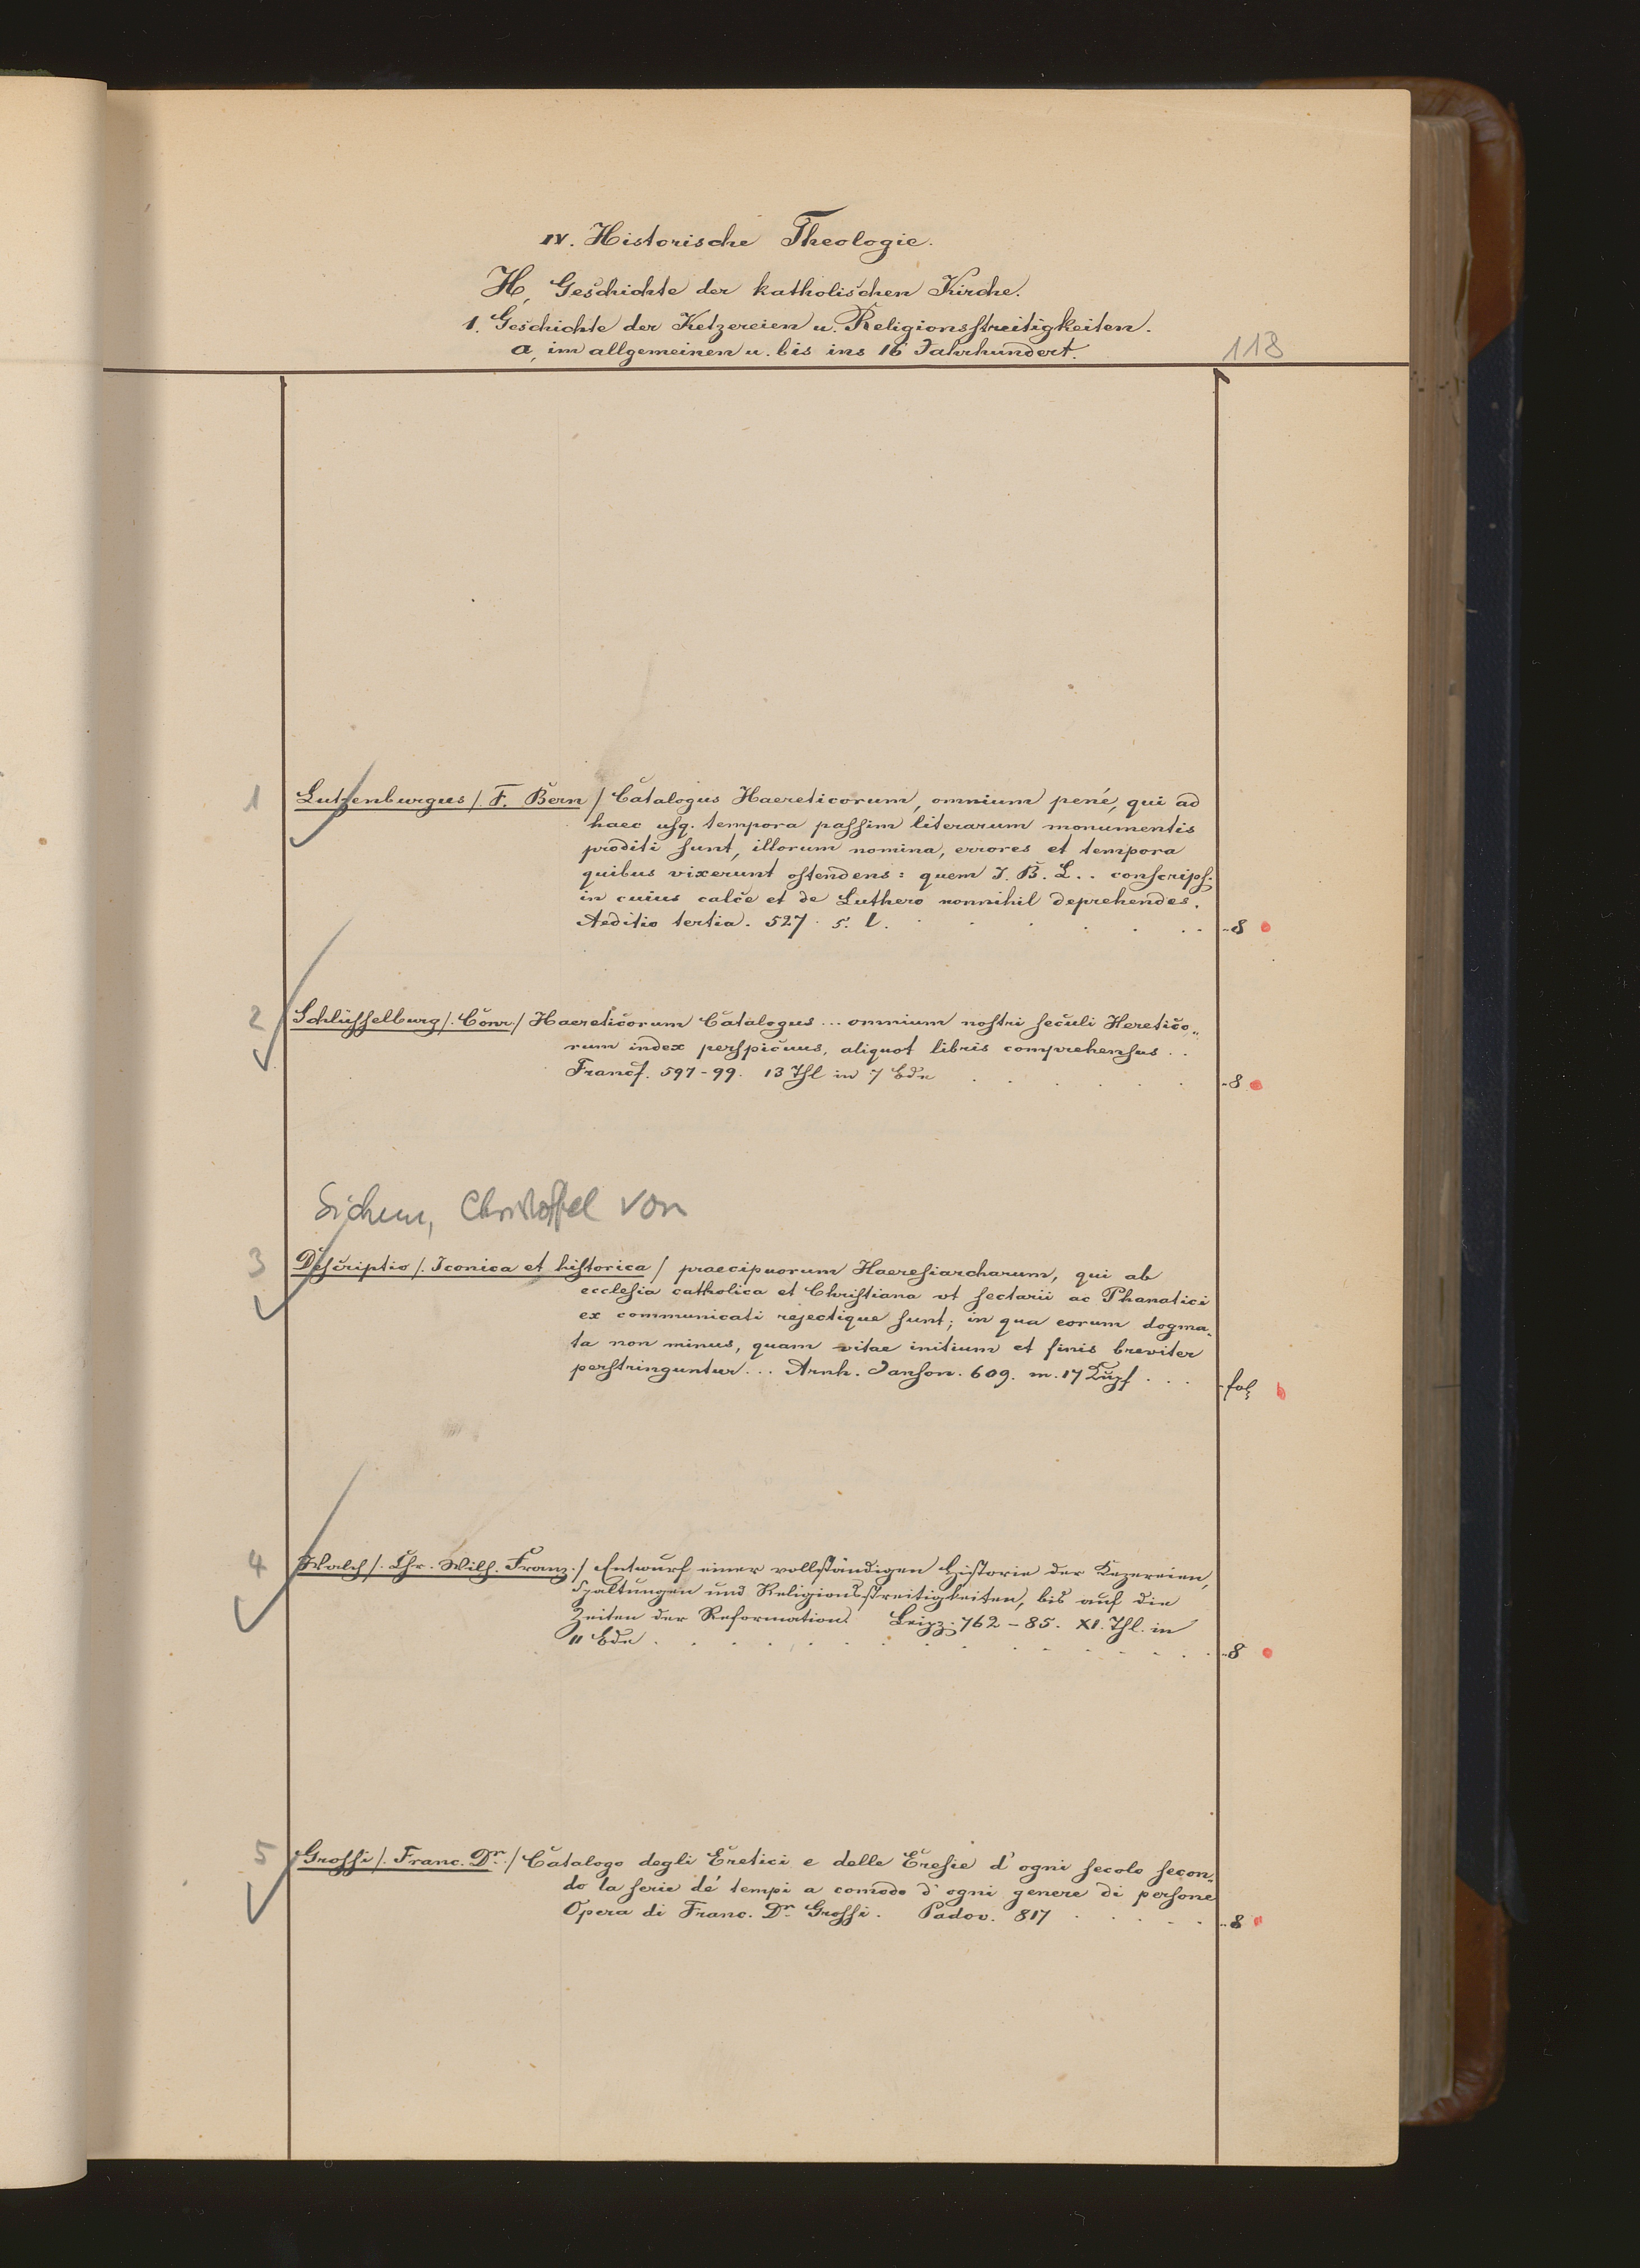 IV. Historische Theologie.
H, Geschichte der katholischen Kirche.
1. Geschichte der Ketzereien u. Religionsstreitigkeiten.
a, im allgemeinen u. bis ins 16 Jahrhundert.
118
1 Lutzenburgus /. F. Bern / Catalogus Haereticorum, omnium pené, qui ad
haec usq. tempora passim literarum monumentis
proditi sunt, illorum nomina, errores et tempora
quibus vixerunt ostendens: quem F. B. L. . conscrips.
in cuius calce et de Luthero nonnihil deprehendes.
Aeditio tertia. 527. s. l. . . . . . . 8
2 Schlüsselburg /. Conr. / Haereticorum Catalogus ... omnium nostri seculi Heretico„
rum index perspicuus, aliquot libris comprehensus . .
Francf. 597-99. 13 Thl in 7 Bde . . . . . . 8
Sichem, Christoffel von
3 Descriptio /. Iconica et historica / praecipuorum Haeresiarcharum, qui ab
ecclesia catholica et Christiana vt sectarii ac Phanatici
ex communicati rejectique sunt; in qua eorum dogma„
ta non minus, quam vitae initium et finis breviter
perstringuntur ... Arnh. Janson. 609. m. 17 Kupf . . . fol
4 Walch /. Chr. Wilh. Franz. / Entwurf einer vollständigen Historie der Kezereien,
Spaltungen und Religionsstreitigkeiten, bis auf die
Zeiten der Reformation. Leipz. 762-85. XI. Thl. in
11 Bde . . . . . . . . . . . . 8
5 Grossi /. Franc. Dr. / Catalogo degli Eretici e delle Eresie d' ogni secolo secon„
do la serie dé tempi a comodo d' ogni genere di persone
Opera di Franc. Dr. Grossi. Padov. 817 . . . . . 8